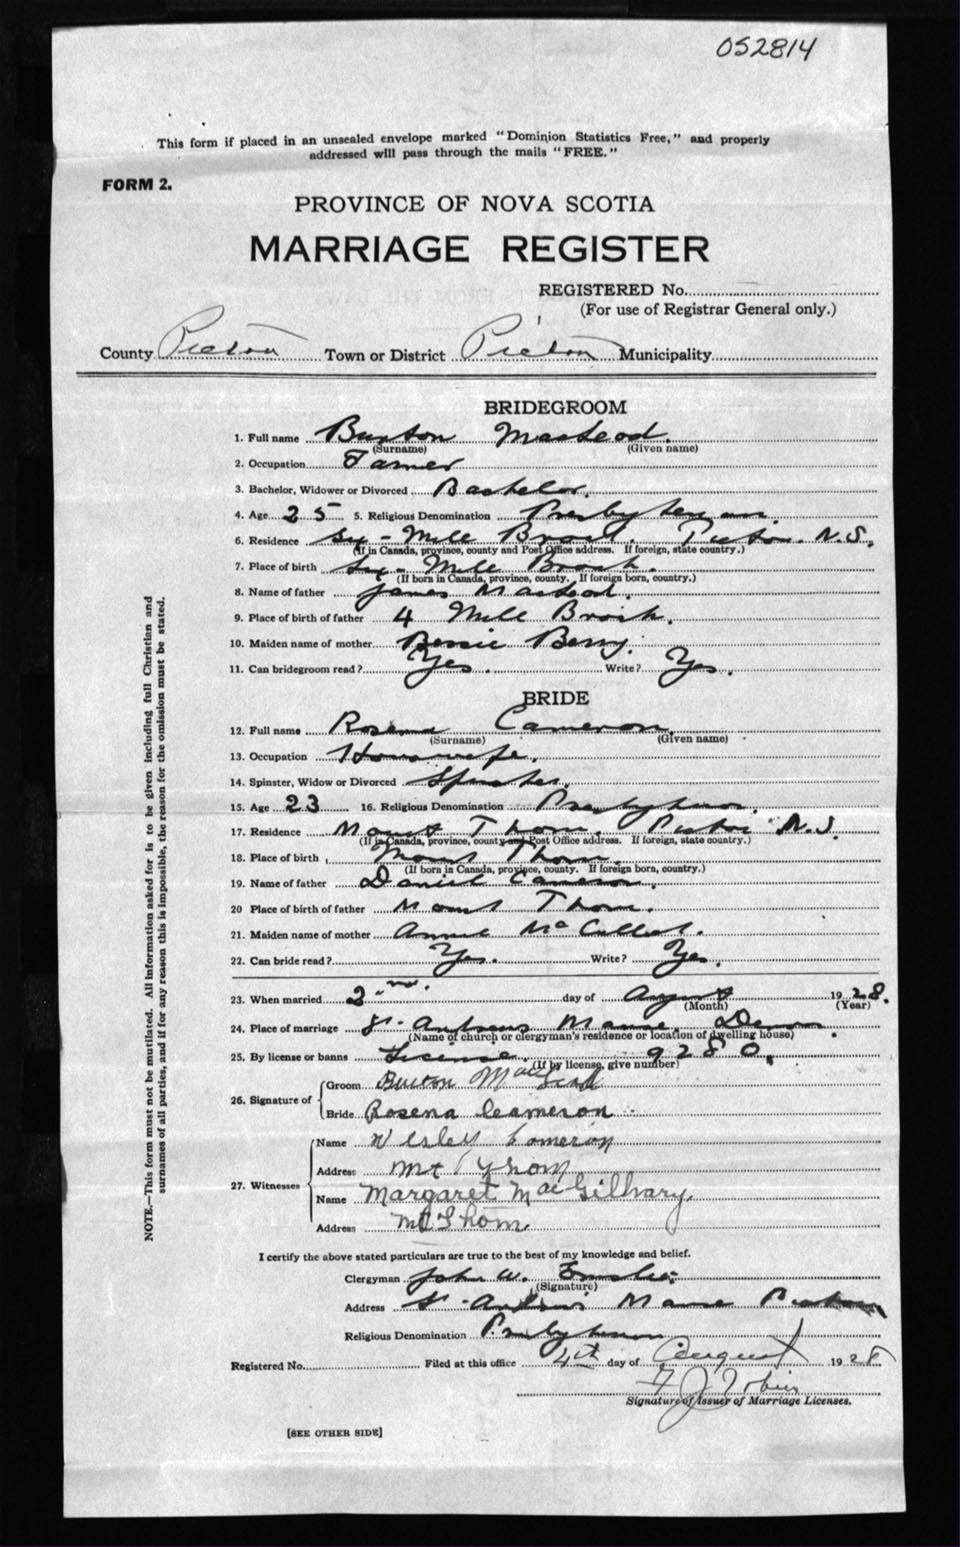 052814
This form if placed in an unsealed envelope marked "Dominion Statistics Free," and properly
addressed will pass through the mails "FREE."
FORM 2.
PROVINCE OF NOVA SCOTIA
MARRIAGE REGISTER
REGISTERED No.
(For use of Registrar General only.)
County Pictou Town or District Pictou Municipality
BRIDEGROOM
1. Full name Burton MacLeod.
(Surname) (Given name)
2. Occupation Farmer
3. Bachelor, Widower or Divorced Bachelor.
4. Age 25 5. Religious Denomination Presbyterian.
6. Residence Six-Mile Brook. Pictou. N.S.
(If in Canada, province, county and Post Office address. If foreign, state country.)
7. Place of birth Six-Mile Brook.
(If born in Canada, province, county. If foreign born, country.)
8. Name of father James MacLeod.
9. Place of birth of father 4 Mile Brook.
10. Maiden name of mother Bessie Berry.
11. Can bridegroom read? Yes. Write? Yes.
BRIDE
12. Full name Rosena Cameron.
(Surname) (Given name)
13. Occupation Housewife.
14. Spinster, Widow or Divorced Spinster.
15. Age 23 16. Religious Denomination Presbyterian.
17. Residence Mount Thom. Pictou N.S.
(If in Canada, province, county and Post Office address. If foreign, state country.)
18. Place of birth Mount Thom.
(If born in Canada, province, county. If foreign born, country.)
19. Name of father Daniel Cameron.
20 Place of birth of father Mount Thom.
21. Maiden name of mother Annie Mc
22. Can bride read? Yes. Write? Yes.
23. When married 2nd. day of August 1928.
(Month) (Year)
24. Place of marriage St. Andrews Manse,
(Name of church or clergyman's residence or location of dwelling house)
25. By license or banns License. 9280.
(If by license, give number)
26. Signature of Groom Burton MacLeod
Bride Rosena Cameron
27. Witnesses Name Wesley Cameron
Address Mt Thom
Name Margaret MacGillvary.
Address Mt Thom
I certify the above stated particulars are true to the best of my knowledge and belief.
Clergyman John W.
(Signature)
Address St. Andrews Manse Pictou
Religious Denomination Presbyterian
Registered No. Filed at this office 4th day of August 1928
F J Tobin
Signature of Issuer of Marriage Licenses.
[SEE OTHER SIDE]
NOTE.—This form must not be mutilated. All information asked for is to be given including full Christian and
surnames of all parties, and if for any reason this is impossible, the reason for the omission must be stated.